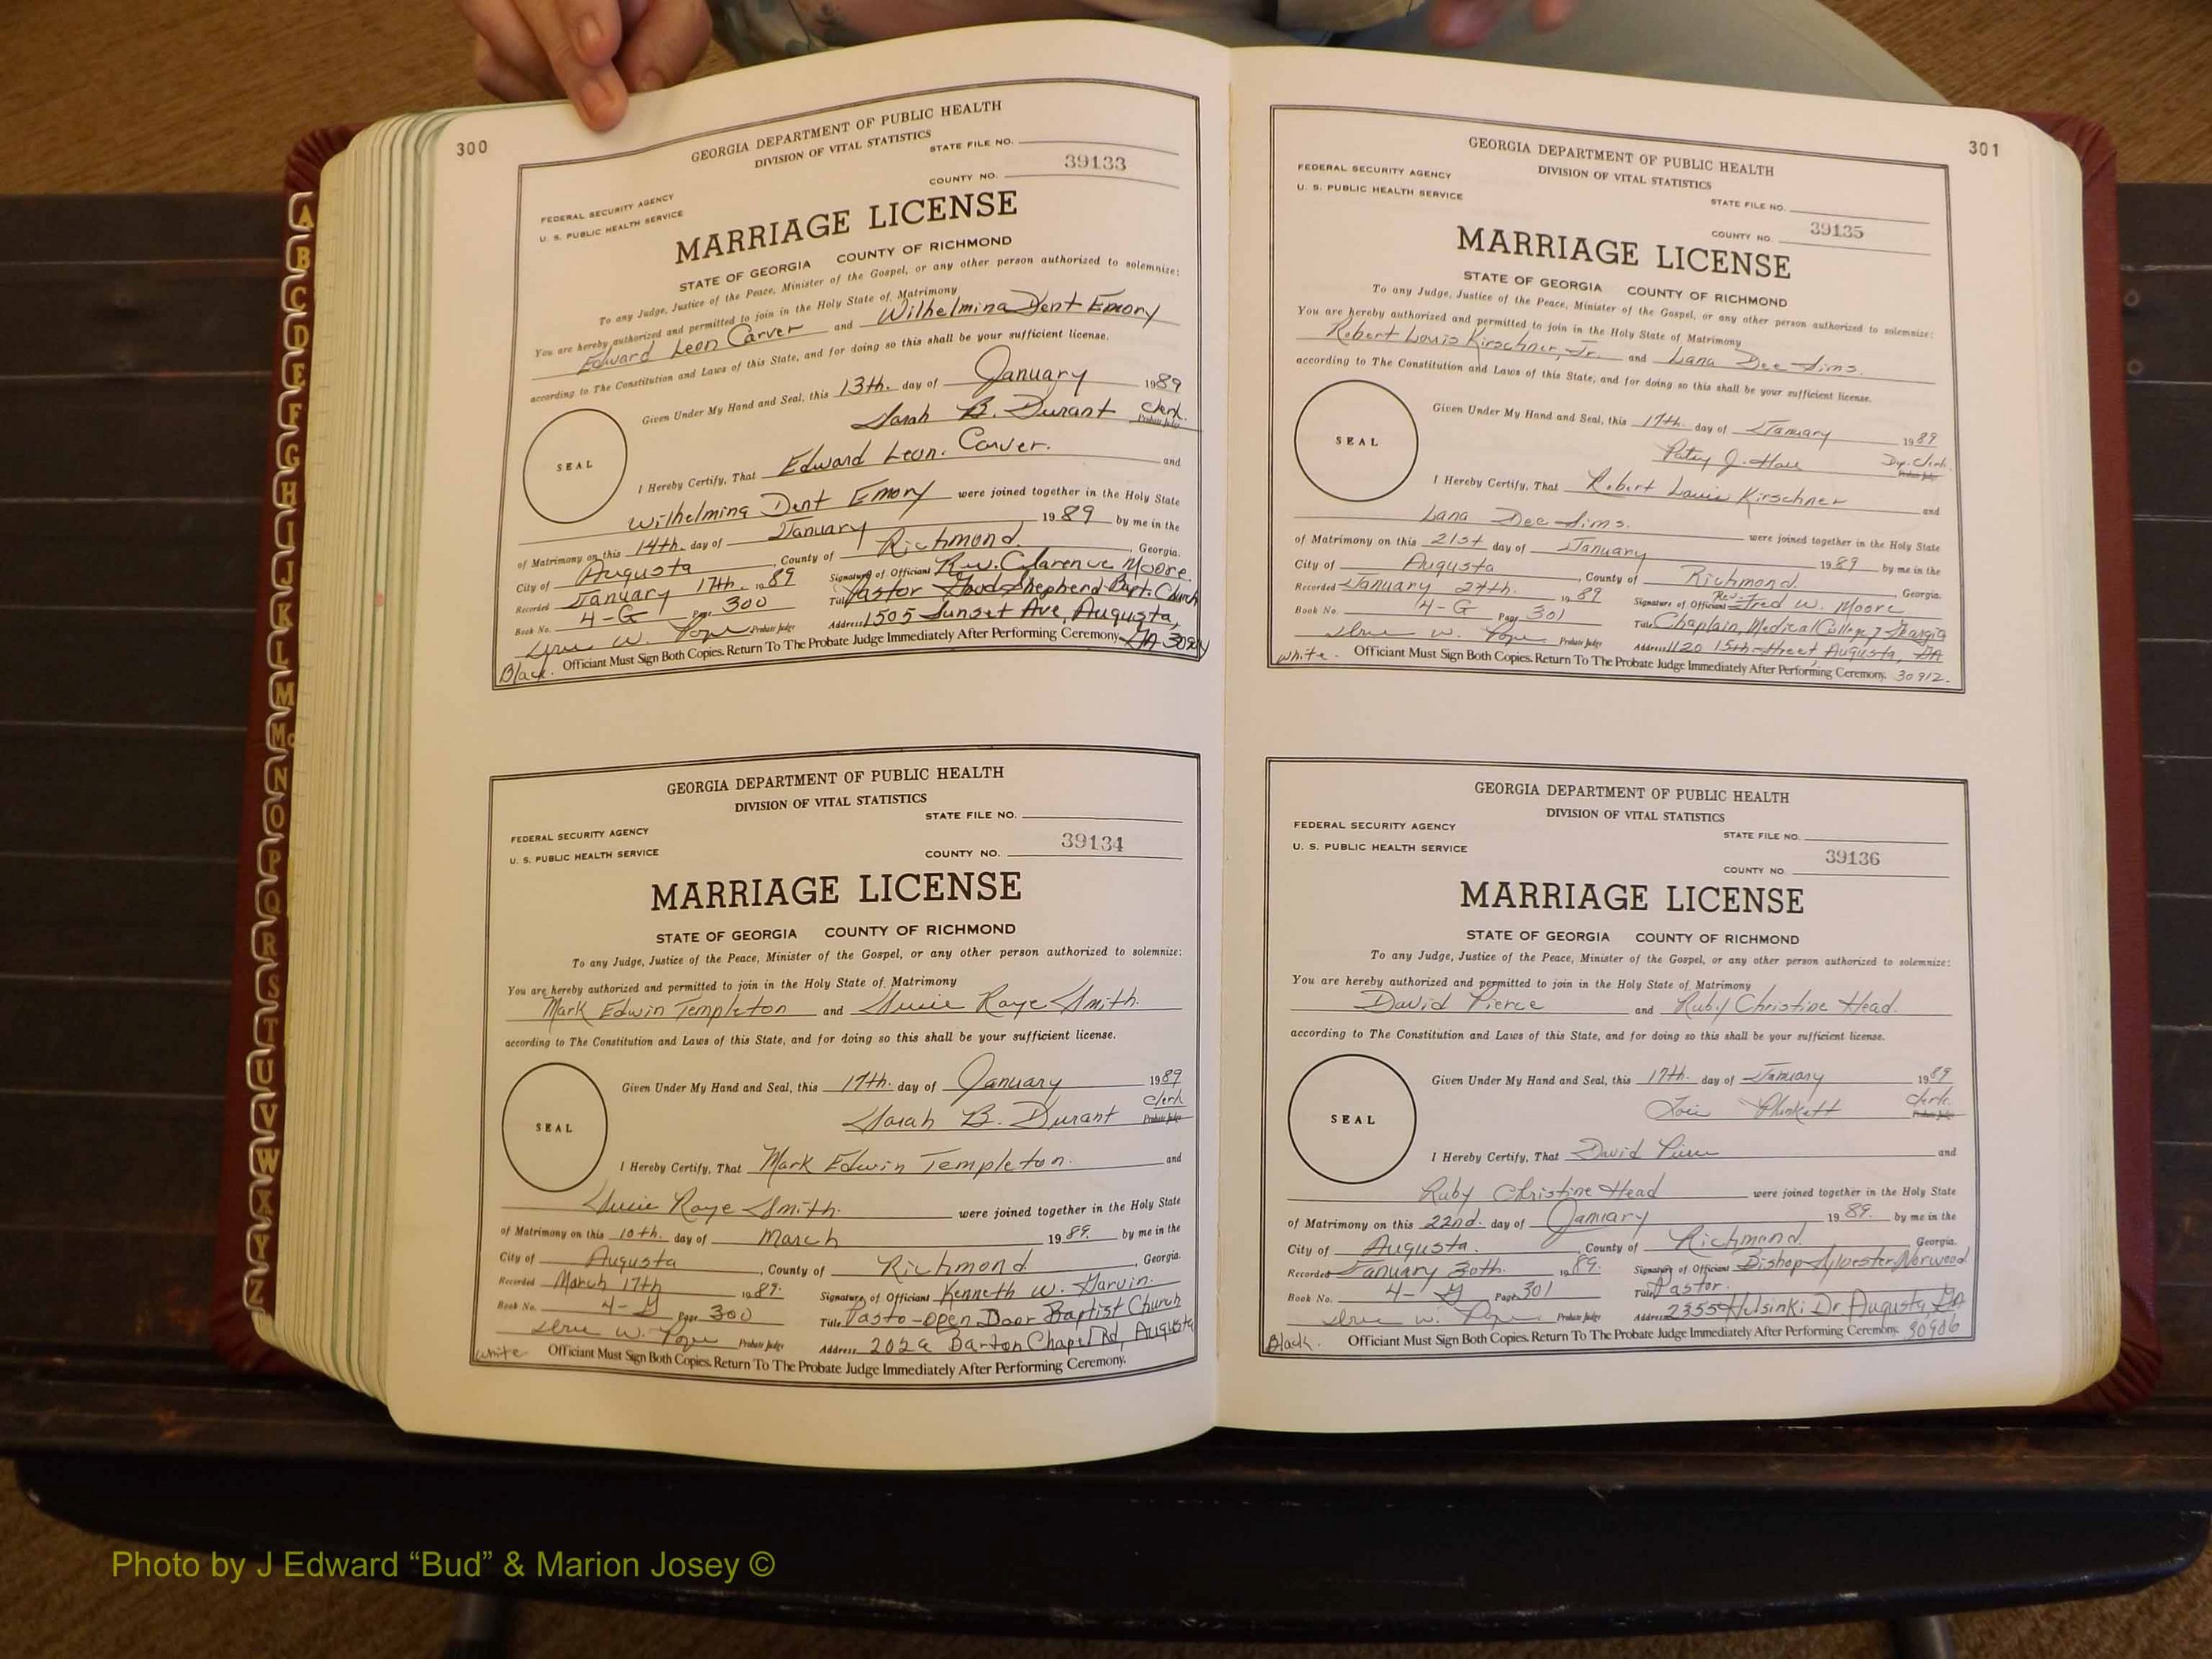 A
B
C
D
E
F
G
H
I
J
K
L
M
Mc
N
O
P
Q
R
S
T
U
V
W
X
Y
Z
300
GEORGIA DEPARTMENT OF PUBLIC HEALTH
DIVISION OF VITAL STATISTICS
STATE FILE NO.
39133
COUNTY NO.
FEDERAL SECURITY AGENCY
U. S. PUBLIC HEALTH SERVICE
MARRIAGE LICENSE
STATE OF GEORGIA COUNTY OF RICHMOND
To any Judge, Justice of the Peace, Minister of the Gospel, or any other person authorized to solemnize:
You are hereby authorized and permitted to join in the Holy State of Matrimony
Edward Leon Carver and Wilhelmina Dent Emory
according to The Constitution and Laws of this State, and for doing so this shall be your sufficient license.
Given Under My Hand and Seal, this 13th. day of January 1989
Sarah B. Durant Clerk
Probate Judge
SEAL
I Hereby Certify, That Edward Leon. Carver. and
Wilhelmina Dent Emory were joined together in the Holy State
of Matrimony on this 14th. day of January 1989 by me in the
City of Augusta, County of Richmond, Georgia.
Recorded January 17th. 1989 Signature of Official Rev. Clarence Moore
Book No. 4-G Page 300 Title Pastor Good Shepherd Bapt. Church
W. Pope Probate Judge Address 1505 Sunset Ave, Augusta,
GA
Black. Officiant Must Sign Both Copies. Return To The Probate Judge Immediately After Performing Ceremony.
GEORGIA DEPARTMENT OF PUBLIC HEALTH
DIVISION OF VITAL STATISTICS
STATE FILE NO.
39134
FEDERAL SECURITY AGENCY
U. S. PUBLIC HEALTH SERVICE
COUNTY NO.
MARRIAGE LICENSE
STATE OF GEORGIA COUNTY OF RICHMOND
To any Judge, Justice of the Peace, Minister of the Gospel, or any other person authorized to solemnize:
You are hereby authorized and permitted to join in the Holy State of Matrimony
Mark Edwin Templeton and Raye Smith.
according to The Constitution and Laws of this State, and for doing so this shall be your sufficient license.
Given Under My Hand and Seal, this 17th. day of January 1989
Sarah B. Durant Clerk
Probate Judge
SEAL
I Hereby Certify, That Mark Edwin Templeton. and
Raye Smith. were joined together in the Holy State
of Matrimony on this 10th. day of March 1989. by me in the
City of Augusta, County of Richmond, Georgia.
Recorded March 17th 1989. Signature of Official Kenneth W. Garvin.
Book No. 4-G Page 300 Title Pasto-Open Door Baptist Church
W. Pope Probate Judge Address Barton Chapel Rd, Augusta
white Officiant Must Sign Both Copies. Return To The Probate Judge Immediately After Performing Ceremony.
301
GEORGIA DEPARTMENT OF PUBLIC HEALTH
DIVISION OF VITAL STATISTICS
FEDERAL SECURITY AGENCY
U. S. PUBLIC HEALTH SERVICE
STATE FILE NO.
39135
COUNTY NO.
MARRIAGE LICENSE
STATE OF GEORGIA COUNTY OF RICHMOND
To any Judge, Justice of the Peace, Minister of the Gospel, or any other person authorized to solemnize:
You are hereby authorized and permitted to join in the Holy State of Matrimony
Robert Louis Kirschner, Jr. and Lana Dee Sims.
according to The Constitution and Laws of this State, and for doing so this shall be your sufficient license.
Given Under My Hand and Seal, this 17th. day of January 1989
Patsy J. Hall Dep. Clerk
Probate Judge
SEAL
I Hereby Certify, That Robert Louis Kirschner and
Lana Dee Sims. were joined together in the Holy State
of Matrimony on this 21st day of January 1989 by me in the
City of Augusta, County of Richmond. Georgia.
Recorded January 27th. 1989 Signature of Official Rev. Fred W. Moore
Book No. 4-G Page 301 Title Chaplain, Medical College of Georgia
W. Pope Probate Judge Address 1120 15th Street, Augusta, GA
white. Officiant Must Sign Both Copies. Return To The Probate Judge Immediately After Performing Ceremony. 30912.
GEORGIA DEPARTMENT OF PUBLIC HEALTH
DIVISION OF VITAL STATISTICS
FEDERAL SECURITY AGENCY
U. S. PUBLIC HEALTH SERVICE
STATE FILE NO.
39136
COUNTY NO.
MARRIAGE LICENSE
STATE OF GEORGIA COUNTY OF RICHMOND
To any Judge, Justice of the Peace, Minister of the Gospel, or any other person authorized to solemnize:
You are hereby authorized and permitted to join in the Holy State of Matrimony
David Pierce and Ruby Christine Head.
according to The Constitution and Laws of this State, and for doing so this shall be your sufficient license.
Given Under My Hand and Seal, this 17th. day of January 1989
Lois Plunkett Clerk.
Probate Judge
SEAL
I Hereby Certify, That David Pierce and
Ruby Christine Head were joined together in the Holy State
of Matrimony on this 22nd. day of January 1989. by me in the
City of Augusta., County of Richmond. Georgia.
Recorded January 30th. 1989. Signature of Official Bishop Sylvester Norwood
Book No. 4-G Page 301 Title Pastor.
W. Pope Probate Judge Address 2355 Helsinki Dr Augusta, GA
Black. Officiant Must Sign Both Copies. Return To The Probate Judge Immediately After Performing Ceremony. 30906
Photo by J Edward “Bud” & Marion Josey ©